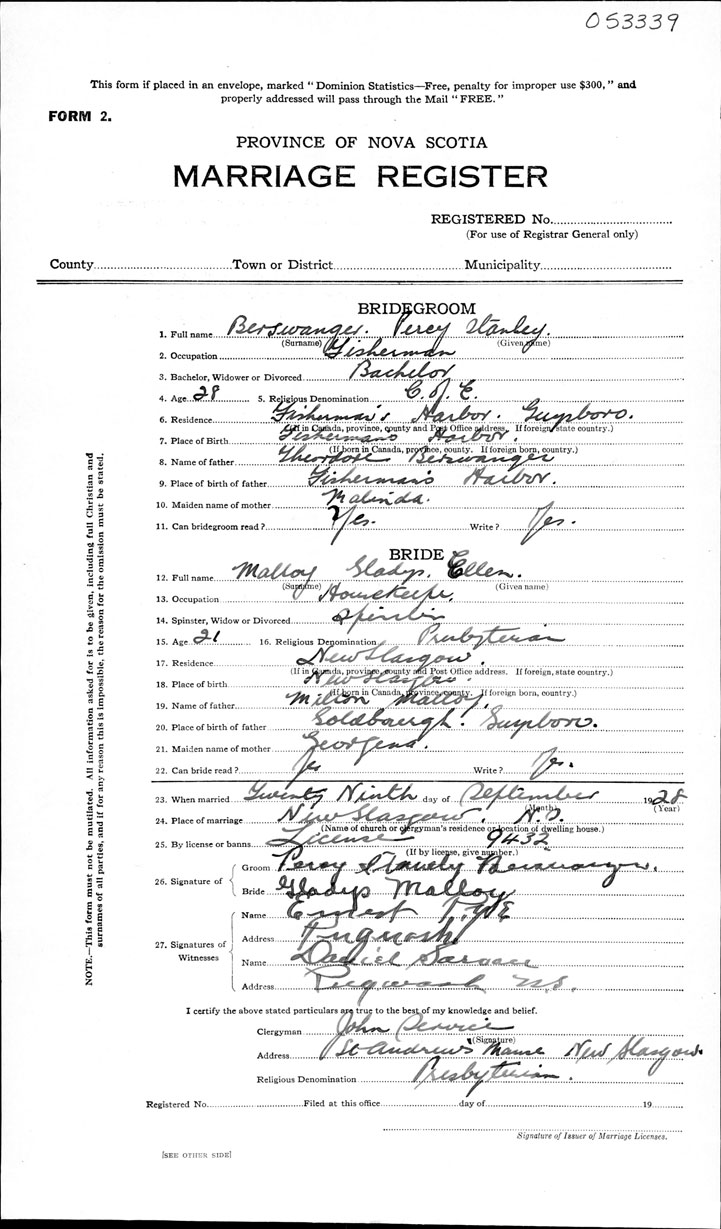 053339
This form if placed in an envelope, marked "Dominion Statistics—Free, penalty for improper use $300," and
properly addressed will pass through the Mail "FREE."
FORM 2.
PROVINCE OF NOVA SCOTIA
MARRIAGE REGISTER
REGISTERED No.
(For use of Registrar General only)
County Town or District Municipality
BRIDEGROOM
1. Full name Berswanger. Percy Stanley.
(Surname) (Given name)
2. Occupation Fisherman
3. Bachelor, Widower or Divorced Bachelor
4. Age 28 5. Religious Denomination C. of E.
6. Residence Fisherman's Harbor. Guysboro.
(If in Canada, province, county and Post Office address. If foreign, state country.)
7. Place of Birth Fishermans Harbor.
(If born in Canada, province, county. If foreign born, country.)
8. Name of father Theodore Berswanger
9. Place of birth of father Fisherman's Harbor.
10. Maiden name of mother Malinda.
11. Can bridegroom read? Yes. Write? Yes.
BRIDE
12. Full name Malloy Gladys. Ellen.
(Surname) (Given name)
13. Occupation Housekeeper.
14. Spinster, Widow or Divorced Spinster
15. Age 21 16. Religious Denomination Presbyterian
17. Residence New Glasgow.
(If in Canada, province, county and Post Office address. If foreign, state country.)
18. Place of birth New Glasgow.
(If born in Canada, province, county. If foreign born, country.)
19. Name of father Milton Malloy.
20. Place of birth of father Guysboro.
21. Maiden name of mother Georgena.
22. Can bride read? Yes Write? Yes.
23. When married Twenty Ninth day of September 1928
(Month) (Year)
24. Place of marriage New Glasgow. N.S.
(Name of church or clergyman's residence or location of dwelling house.)
25. By license or banns License 9432
(If by license, give number.)
26. Signature of Groom Percy Stanely Berswanger.
Bride Gladys Malloy
27. Signatures of Witnesses Name Ernest
Address Pugwash
Name Daniel
Address Pugwash N.S.
I certify the above stated particulars are true to the best of my knowledge and belief.
Clergyman John Service
(Signature)
Address St Andrews Manse New Glasgow.
Religious Denomination Presbyterian.
Registered No. Filed at this office day of 19
Signature of Issuer of Marriage Licenses.
[SEE OTHER SIDE]
NOTE.—This form must not be mutilated. All information asked for is to be given, including full Christian and
surnames of all parties, and if for any reason this is impossible, the reason for the omission must be stated.